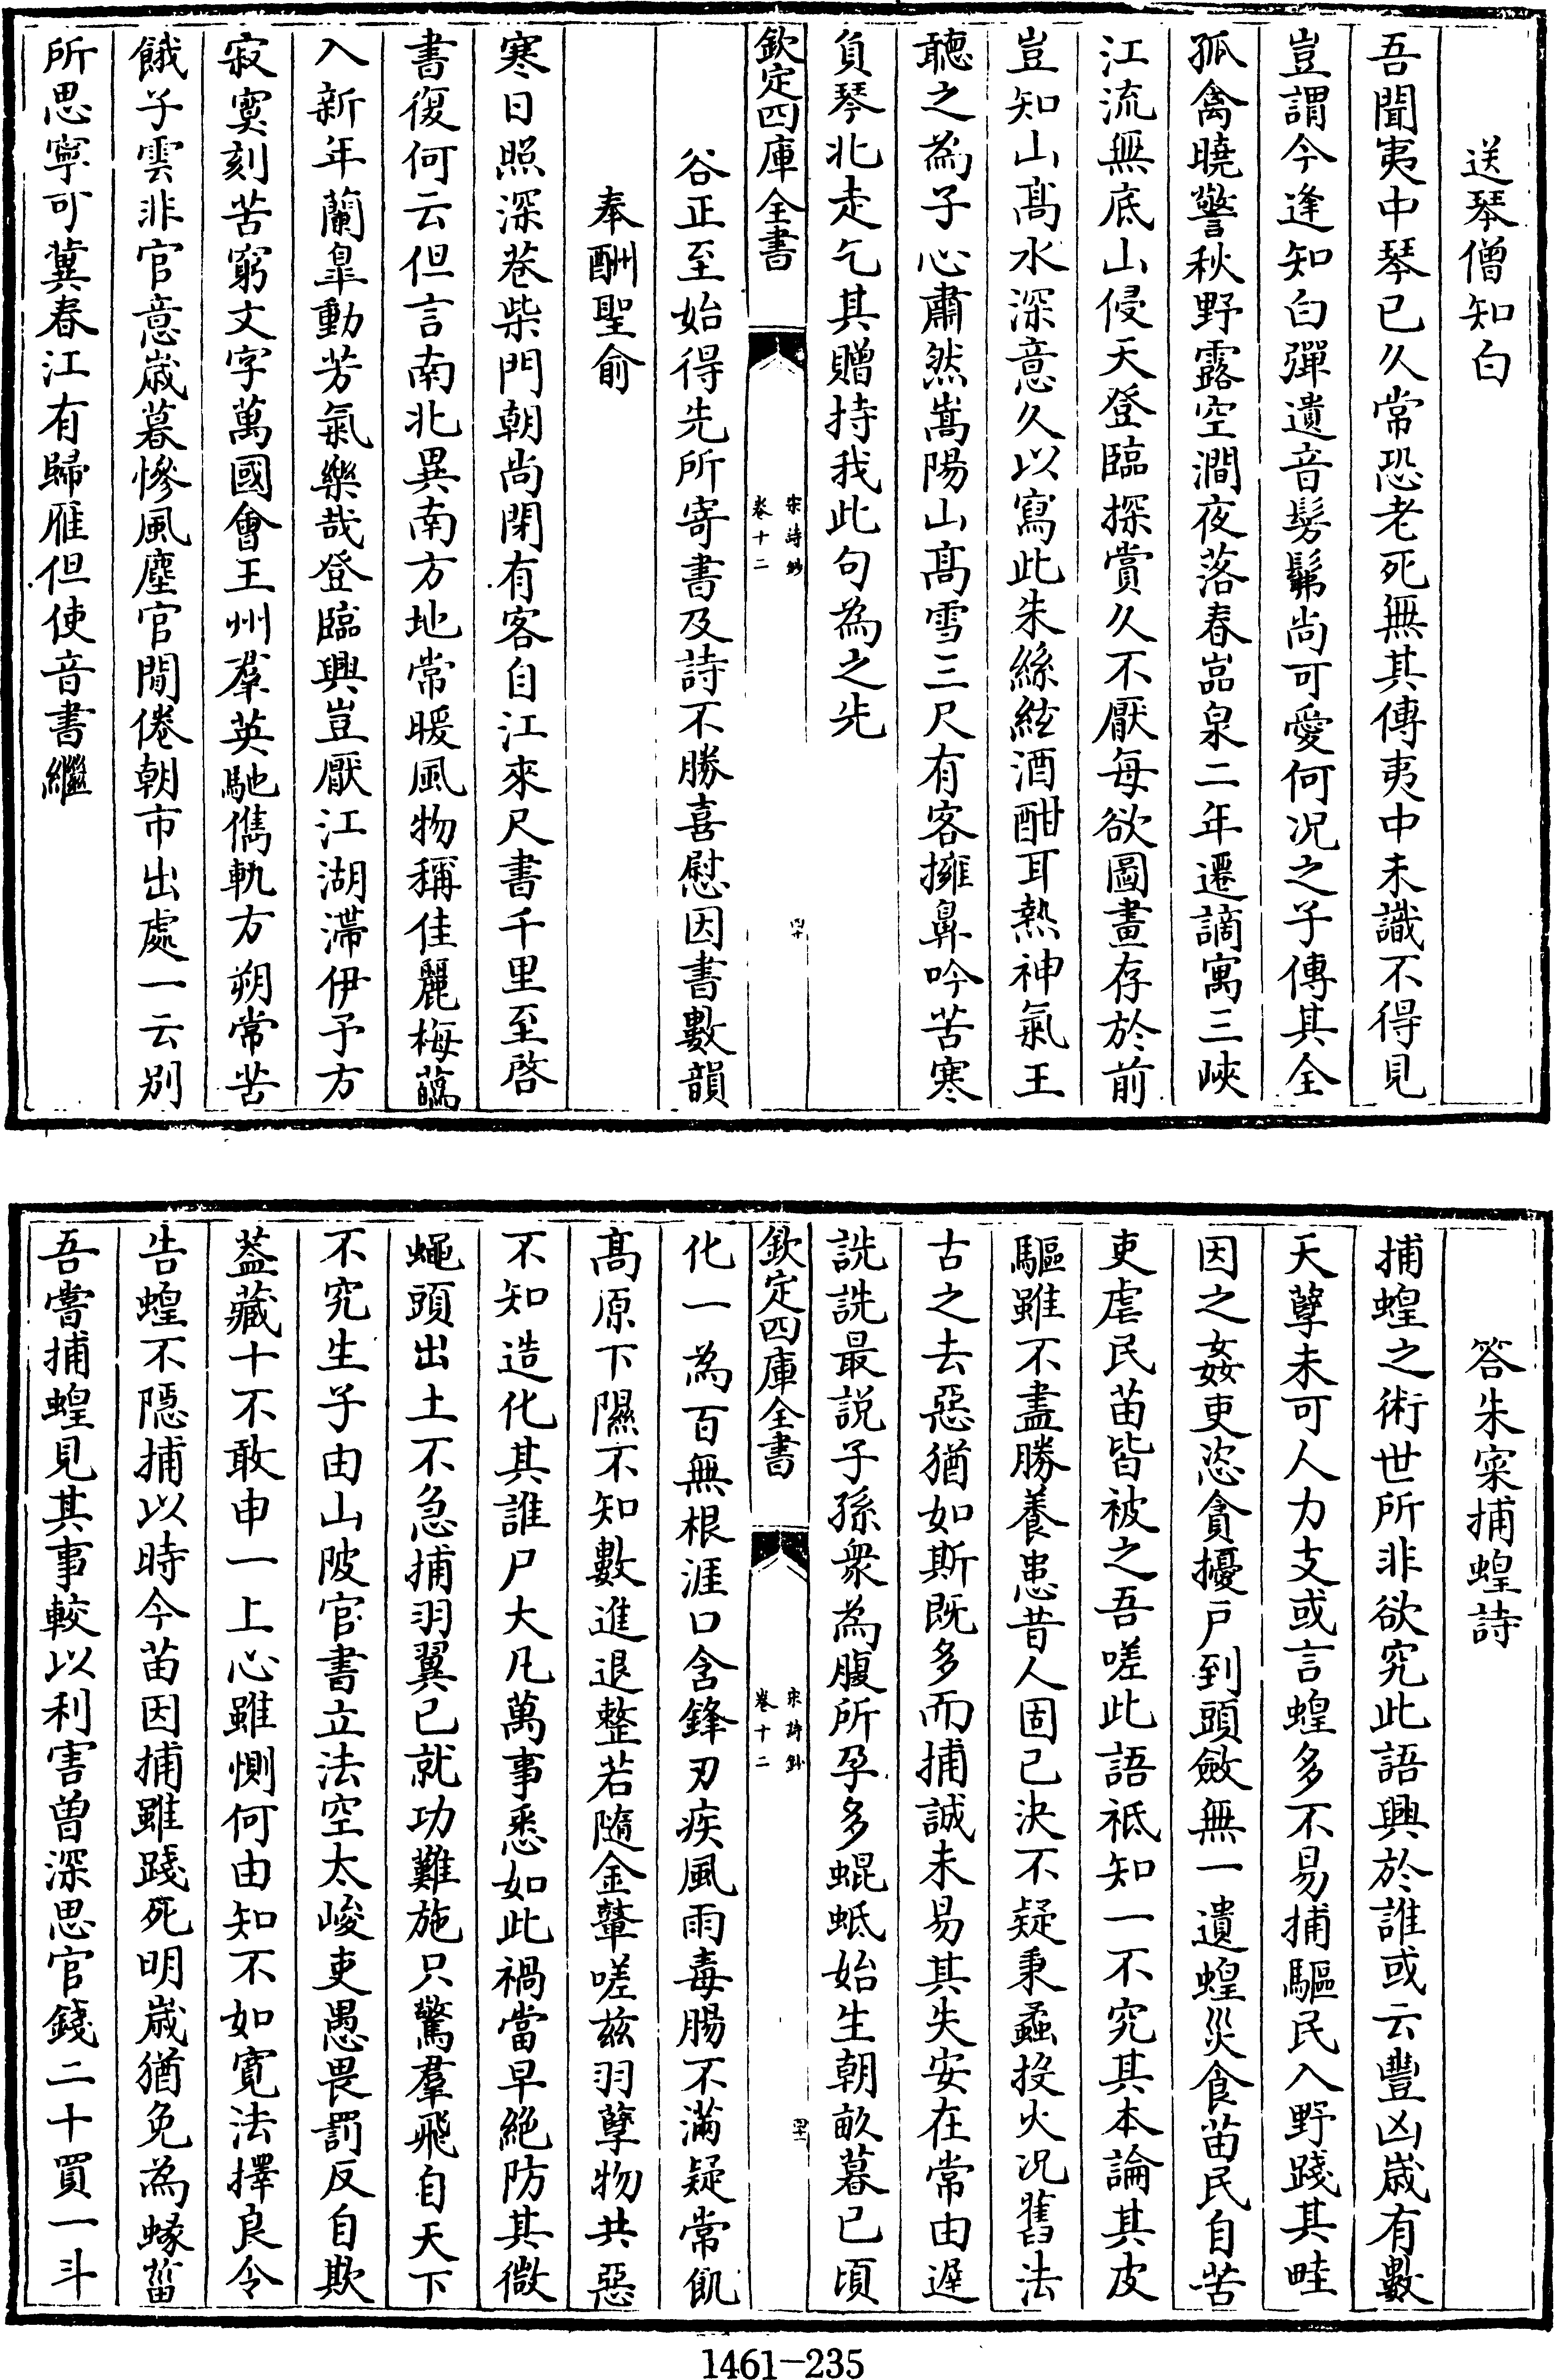 送琴僧知白
吾聞夷中琴已久常恐老死無其傳夷中未識不得見
豈謂今逢知白彈遺音髣髴尚可愛何况之子傳其全
孤禽曉警秋野露空澗夜落春嵓泉二年遷謫寓三峽
江流無底山侵天登臨探賞久不厭每欲圖畫存於前
豈知山髙水深意久以寫此朱絲絃酒酣耳熱神氣王
聽之為子心肅然嵩陽山髙雪三尺有客擁鼻吟苦寒
負琴北走乞其贈持我此句為之先
欽定四庫全書
宋詩鈔
卷十二
四十
谷正至始得先所寄書及詩不勝喜慰因書數韻
奉酬聖俞
寒日照深巷柴門朝尚閉有客自江來尺書千里至啓
書復何云但言南北異南方地常暖風物稱佳麗梅蘤
入新年蘭皐動芳氣樂哉登臨興豈厭江湖滯伊予方
寂寞刻苦窮文字萬國會王州羣英馳儁軌方朔常苦
餓子雲非官意嵗暮慘風塵官閒倦朝市出處一云别
所思寧可冀春江有歸雁但使音書繼
答朱寀捕蝗詩
捕蝗之術世所非欲究此語興於誰或云豐凶嵗有數
天孽未可人力支或言蝗多不易捕驅民入野踐其畦
因之姦吏恣貪擾户到頭斂無一遺蝗災食苗民自苦
吏虐民苗皆被之吾嗟此語祇知一不究其本論其皮
驅雖不盡勝養患昔人固已決不疑秉蟊投火况舊法
古之去惡猶如斯既多而捕誠未易其失安在常由遲
詵詵最説子孫衆為腹所孕多蜫蚳始生朝畝暮已頃
欽定四庫全書
宋詩鈔
卷十二
四十一
化一為百無根涯口含鋒刃疾風雨毒腸不滿疑常飢
髙原下隰不知數進退整若隨金鼙嗟兹羽孽物共惡
不知造化其誰尸大凡萬事悉如此禍當早絶防其微
蠅頭出土不急捕羽翼已就功難施只驚羣飛自天下
不究生子由山陂官書立法空太峻吏愚畏罰反自欺
葢藏十不敢申一上心雖惻何由知不如寛法擇良令
告蝗不隠捕以時今苗因捕雖踐死明嵗猶免為蝝菑
吾嘗捕蝗見其事較以利害曽深思官錢二十買一斗
1461—235